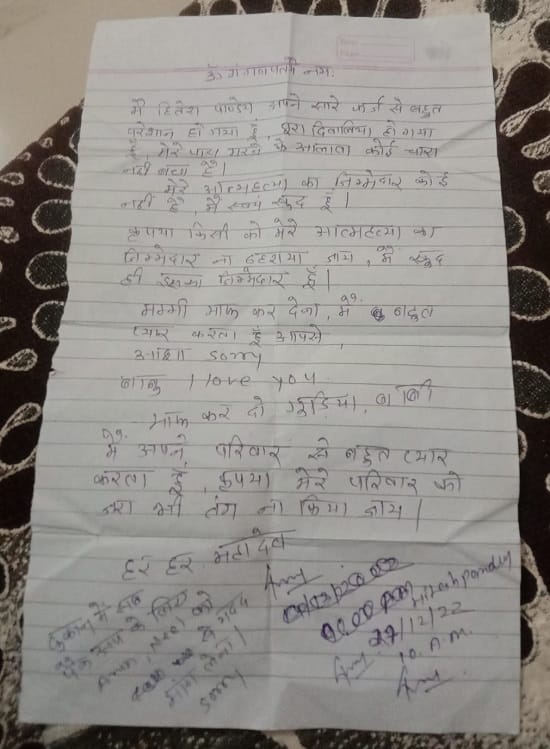 ॐ गं गणपतये नमः
मै हितेश पाण्डेय अपने सारे कर्ज से बहुत
परेशान हो गया हूँ, पूरा दिवालिया हो गया
हूँ मेरे पास मरने के आलावा कोई चारा
नहीं बचा है।
मेरे आत्महत्या का जिम्मेदार कोई
नहीं है, मै स्वयं खुद हूँ।
कृपया किसी को मेरे आत्महत्या का
जिम्मेदार ना ठहराया जाय, मै खुद
ही इसका जिम्मेदार हूँ।
मम्मी माफ कर देना, मै बहुत
प्यार करता हूँ आपसे,
sorry
बाबु I love you
माफ कर दो गुड़िया,
मै अपने परिवार से बहुत प्यार
करता हूँ, कृपया मेरे परिवार को
जरा भी तंग ना किया जाय।
हर हर महादेव
दुकान में सब
के लिए
को
से मदद
मांग लेना।
sorry
Hitesh pandey
27/12/22
10 A.M.